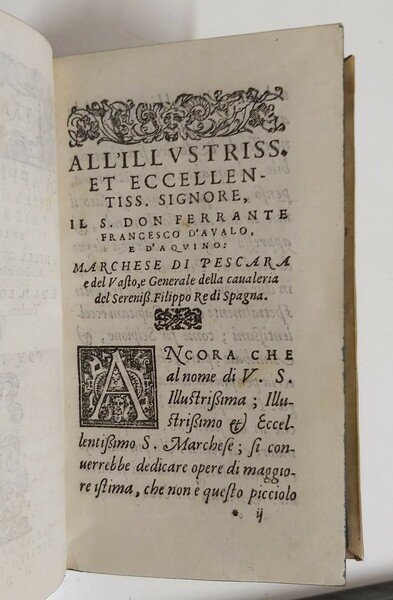 ALL'ILLVSTRISS.
ET ECCELLEN-
TISS. SIGNORE,
IL S. DON FERRANTE
FRANCESCO D'AVALO,
E D'AQVINO:
MARCHESE DI PESCARA
e del Vasto, e Generale della caualeria
del Sereniß. Filippo Re di Spagna.
ANCORA CHE
al nome di V. S.
Illustrißima; Illu-
strißimo & Eccel-
lentißimo S. Marchese; si con-
uerrebbe dedicare opere di maggio-
re istima, che non è questo picciolo
* ij